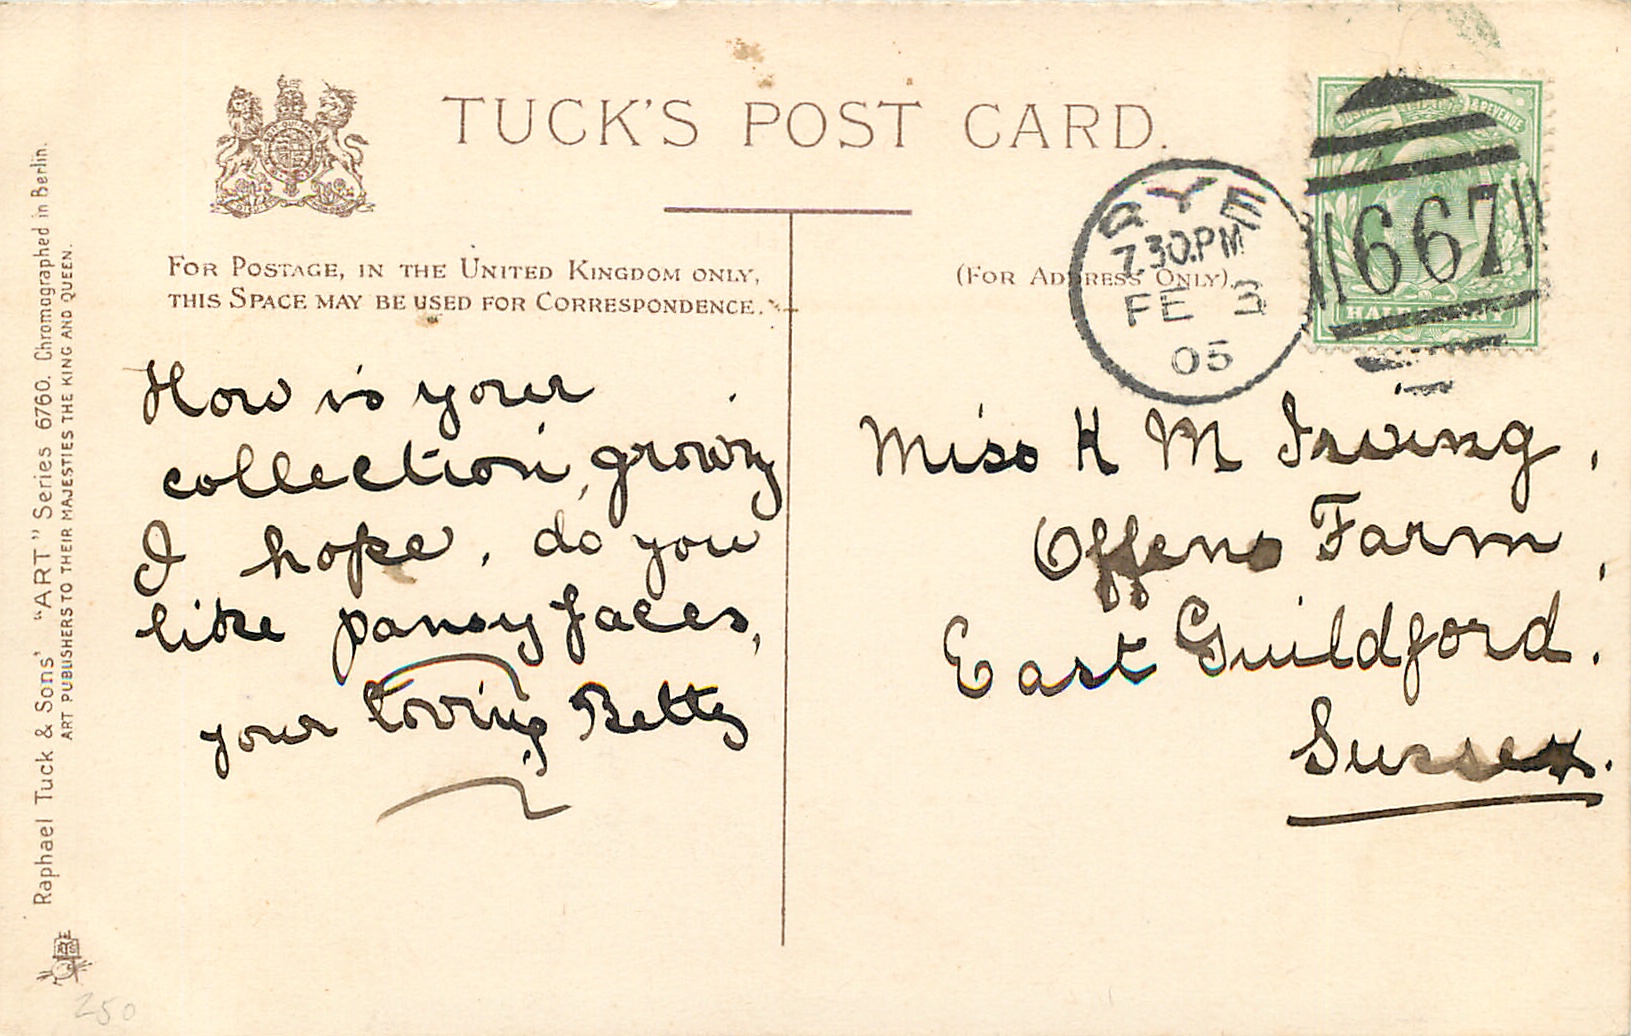 TUCK'S POST CARD.
FOR POSTAGE, IN THE UNITED KINGDOM ONLY,
THIS SPACE MAY BE USED FOR CORRESPONDENCE.
(FOR ADDRESS ONLY).
RYE
7.30.PM
FE 3
05
POSTAGE & REVENUE
667
HALFPENNY
How is your
collection, growing
I hope, do you
like pansy faces,
your loving Betty
Miss K M Irving,
Offens Farm,
East Guildford.
Sussex.
Raphael Tuck & Sons' "ART" Series 6760. Chromographed in Berlin.
ART PUBLISHERS TO THEIR MAJESTIES THE KING AND QUEEN.
250